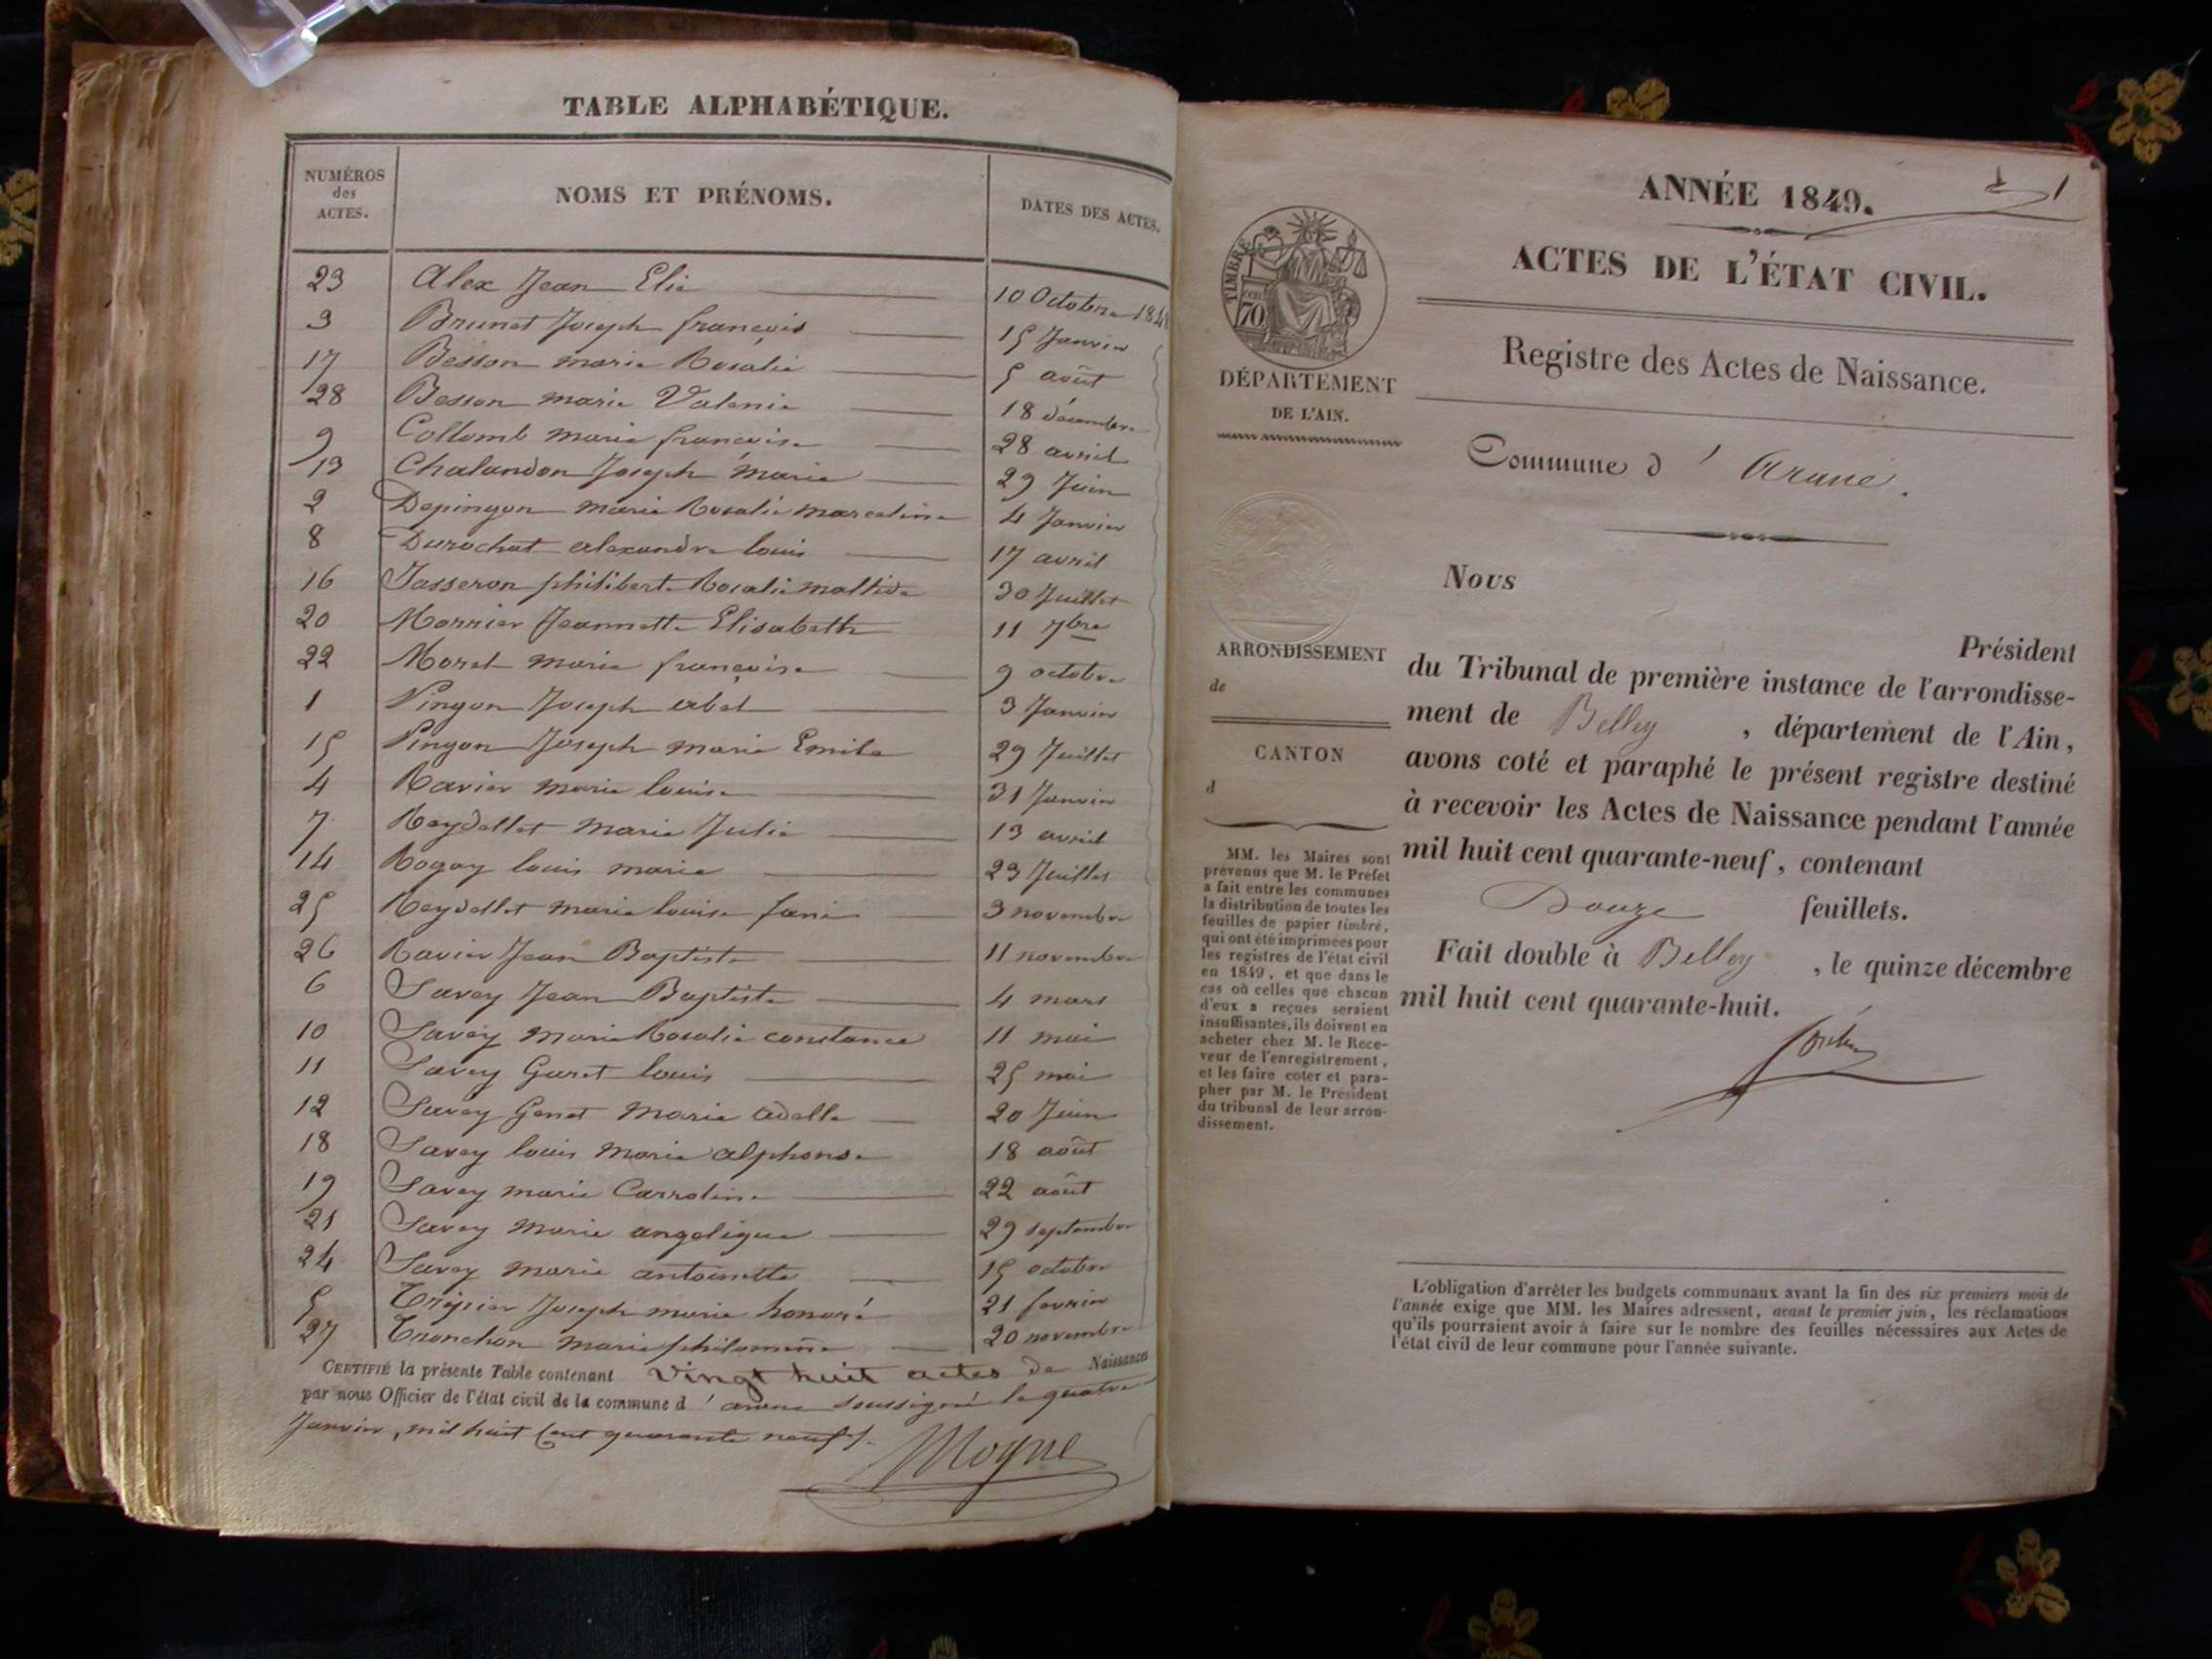 TABLE ALPHABÉTIQUE.
NUMÉROS des ACTES.
NOMS ET PRÉNOMS.
DATES DES ACTES.
23 Alex Jean Elie 10 Octobre 1848
3 Brunet Joseph françois 15 Janvier
17 Besson marie Rosalie 5 août
28 Besson marie Valerie 18 décembre
9 Collomb marie françoise 28 avril
13 Chalandon Joseph marie 29 Juin
2 Depingon marie Rosalie marceline 4 Janvier
8 Durochat alexandre louis 17 avril
16 Jasseron philiberte Rosalie maltide 30 Juillet
20 Monnier Jeannette Elisabeth 11 7bre
22 Morel marie françoise 9 octobre
1 Pingon Joseph abel 3 Janvier
15 Pingon Joseph marie Emile 29 Juillet
4 Ravier marie louise 31 Janvier
7 Reydellet marie Julie 13 avril
14 Rogay louis marie 23 Juillet
25 Reydellet marie louise fani 3 novembre
26 Ravier Jean Baptiste 11 novembre
6 Savey Jean Baptiste 4 mars
10 Savey marie Rosalie constance 11 mai
11 Savey Guret louis 25 mai
12 Savey Genet marie adelle 20 Juin
18 Savey louis marie alphonse 18 août
19 Savey marie Carroline 22 août
21 Savey marie angelique 29 septembre
24 Savey marie antoinette 15 octobre
5 Trépier Joseph marie honoré 21 fevrier
27 Tronchon marie philomène 20 novembre
CERTIFIÉ la présente Table contenant vingt huit actes de Naissances
par nous Officier de l'état civil de la commune d'arane soussigné le quatre
Janvier, mil huit cent quarante neuf
Moyne
1
ANNÉE 1849.
ACTES DE L'ÉTAT CIVIL.
Registre des Actes de Naissance.
TIMBRE
70
DÉPARTEMENT
DE L'AIN.
Commune d'Arane.
ARRONDISSEMENT
de
CANTON
d
MM. les Maires sont
prévenus que M. le Préfet
a fait entre les communes
la distribution de toutes les
feuilles de papier timbré,
qui ont été imprimées pour
les registres de l'état civil
en 1849, et que dans le
cas où celles que chacun
d'eux a reçues seraient
insuffisantes, ils doivent en
acheter chez M. le Rece-
veur de l'enregistrement,
et les faire coter et para-
pher par M. le Président
du tribunal de leur arron-
dissement.
Nous
Président
du Tribunal de première instance de l'arrondisse-
ment de Belley, département de l'Ain,
avons coté et paraphé le présent registre destiné
à recevoir les Actes de Naissance pendant l'année
mil huit cent quarante-neuf, contenant
Douze feuillets.
Fait double à Belley, le quinze décembre
mil huit cent quarante-huit.
L'obligation d'arrêter les budgets communaux avant la fin des six premiers mois de
l'année exige que MM. les Maires adressent, avant le premier juin, les réclamations
qu'ils pourraient avoir à faire sur le nombre des feuilles nécessaires aux Actes de
l'état civil de leur commune pour l'année suivante.